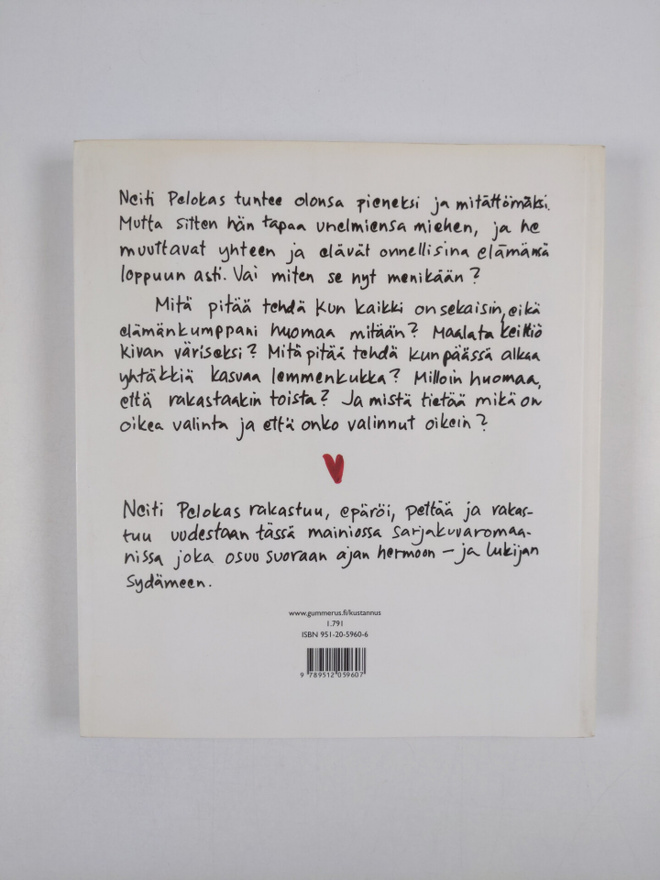 Neiti Pelokas tuntee olonsa pieneksi ja mitättömäksi.
Mutta sitten hän tapaa unelmiensa miehen, ja he
muuttavat yhteen ja elävät onnellisina elämänsä
loppuun asti. Vai miten se nyt menikään?
Mitä pitää tehdä kun kaikki on sekaisin, eikä
elämänkumppani huomaa mitään? Maalata keittiö
kivan väriseksi? Mitä pitää tehdä kun päässä alkaa
yhtäkkiä kasvaa lemmenkukka? Milloin huomaa,
että rakastaakin toista? Ja mistä tietää mikä on
oikea valinta ja että onko valinnut oikein?
Neiti Pelokas rakastuu, epäröi, pettää ja rakas-
tuu uudestaan tässä mainiossa sarjakuvaromaa-
nissa joka osuu suoraan ajan hermoon – ja lukijan
sydämeen.
www.gummerus.fi/kustannus
1.791
ISBN 951-20-5960-6
9 789512 059607